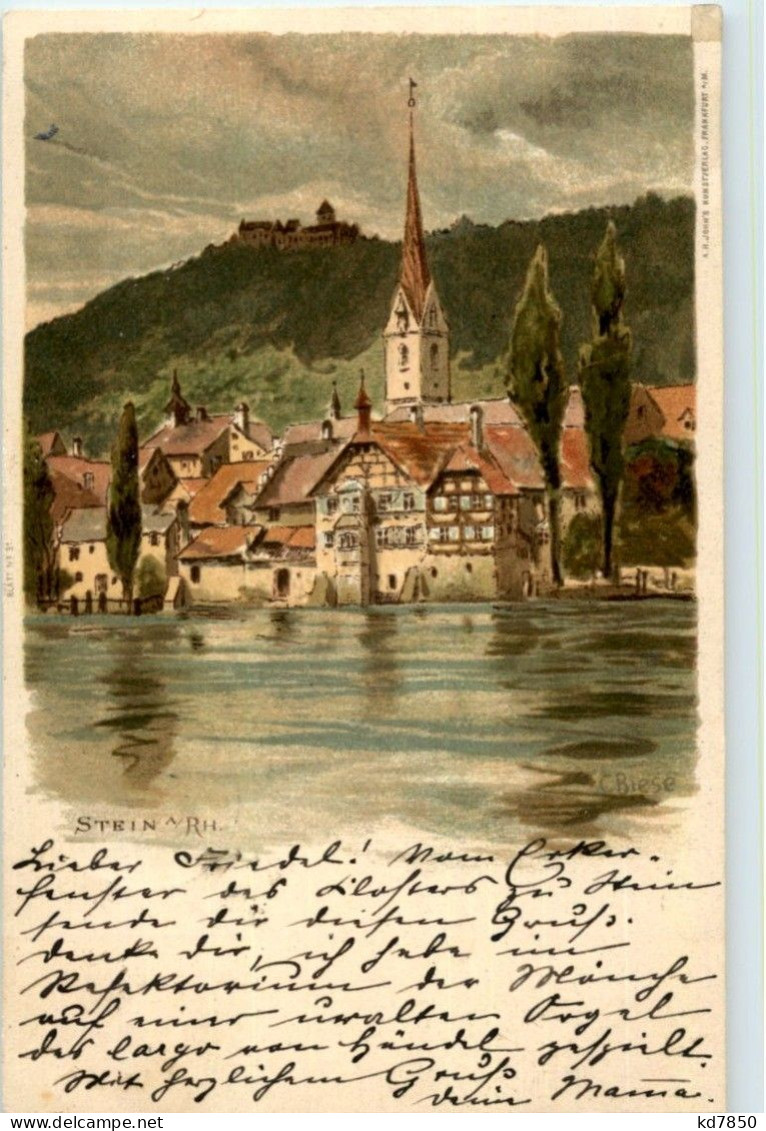 A.H. JOHN'S KUNSTVERLAG, FRANKFURT A/M.
BLATT No 3
C. Biese
STEIN A/RH.
Lieber Friedel! Vom Erker-
fenster des Klosters zu Stein
sende dir diesen Gruß.
denke dir, ich habe im
Refektorium der Mönche
auf einer uralten Orgel
das largo von Händel gespielt.
Mit herzlichem Gruß
deine Mama.
kd7850